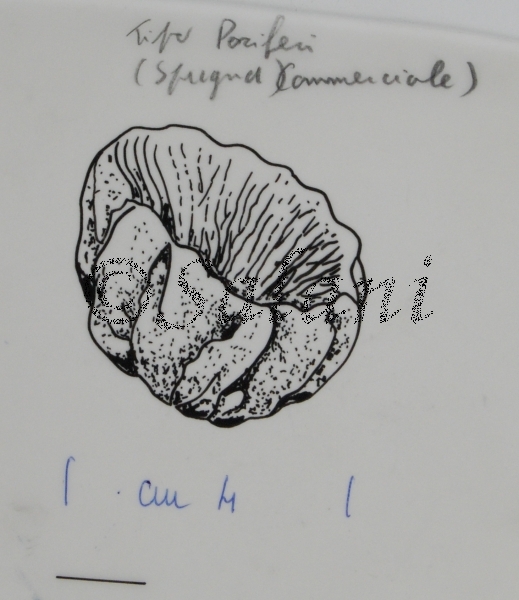 Tipo Poriferi
(Spugna Commerciale)
©Sutani
cm 4